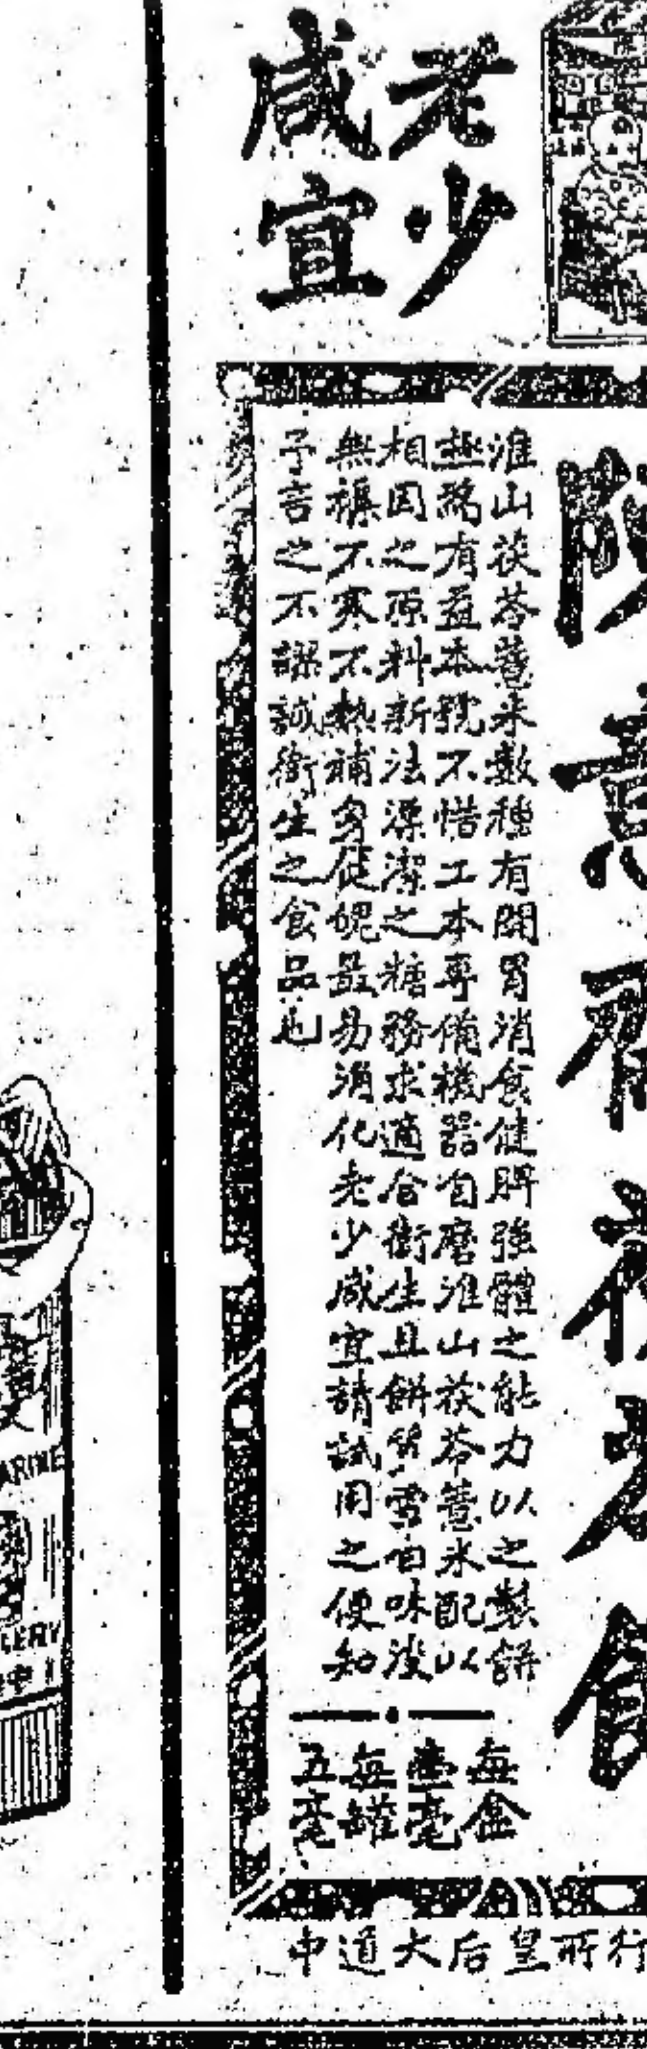 老少
咸宜
陳意齋
淮山茯苓薏米數種有開胃消食健脾強體之能力以之製餅
為有益本號不惜工本專備機器自磨淮山茯苓薏米配以
相因之原料新法漂潔之糖務求適合衛生且餅質雪白味淡
無不寒不熱補身健魄最易消化老少咸宜請試用之便知
予言之不謬誠衛生之食品也
每盒
壹毫
每罐
五毫
行所皇后大道中
ARINE
LERY